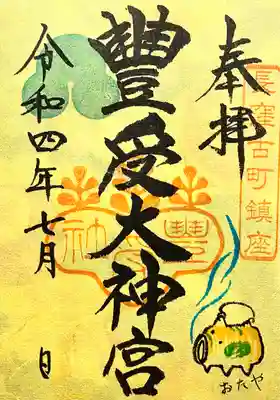 奉拝
長窪古町鎮座
豐受大神宮
豐受社
令和四年七月 日
おたや